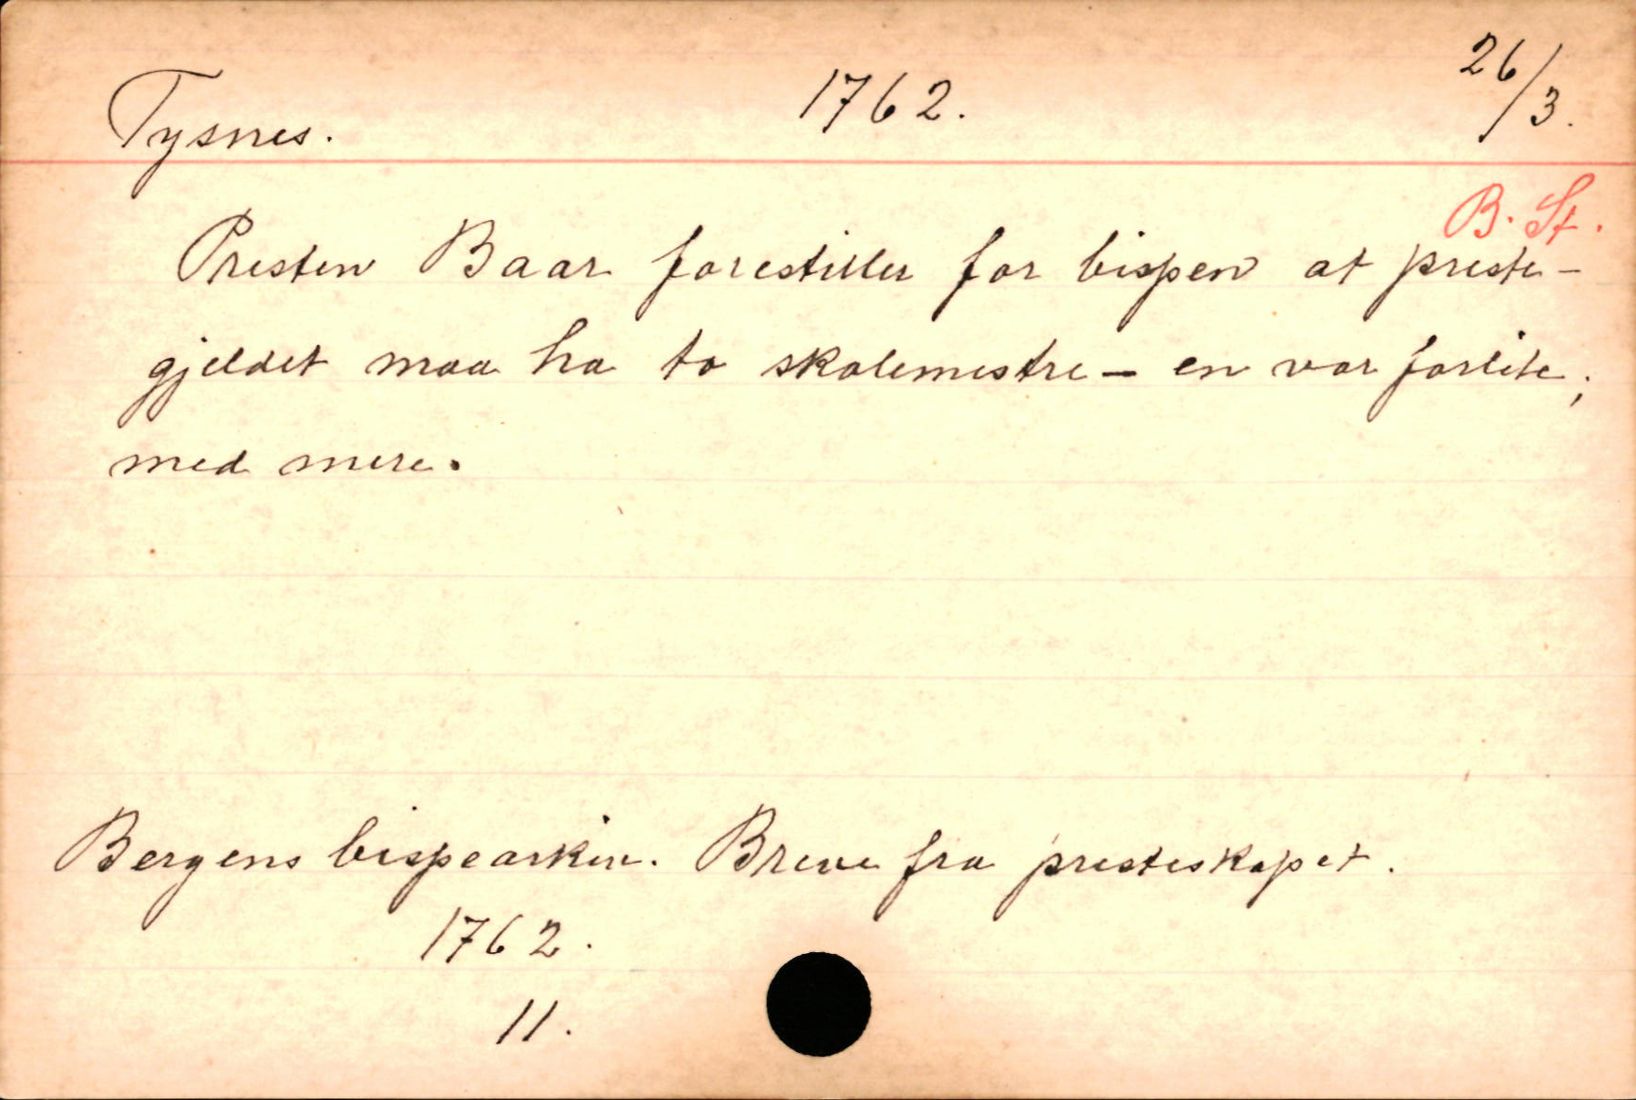 Tysnes. 1762. 26/3.
B. St.
Presten Baar forestiller for bispen at preste-
gjeldet maa ha to skolemestre – en var forlite;
med mere.
Bergens bispearkiv. Breve fra presteskapet.
1762.
11.